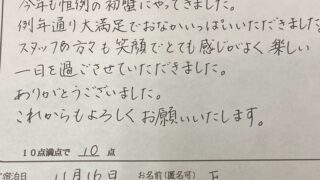 今年も恒例の初蟹にやってきました。
例年通り大満足でおなかいっぱいいただきました
スタッフの方々も笑顔でとても感じがよく楽しい
一日を過ごさせていただきました。
ありがとうございました。
これからもよろしくお願いいたします。
10点満点で 10 点
宿泊日 11月16日 お名前(匿名可)